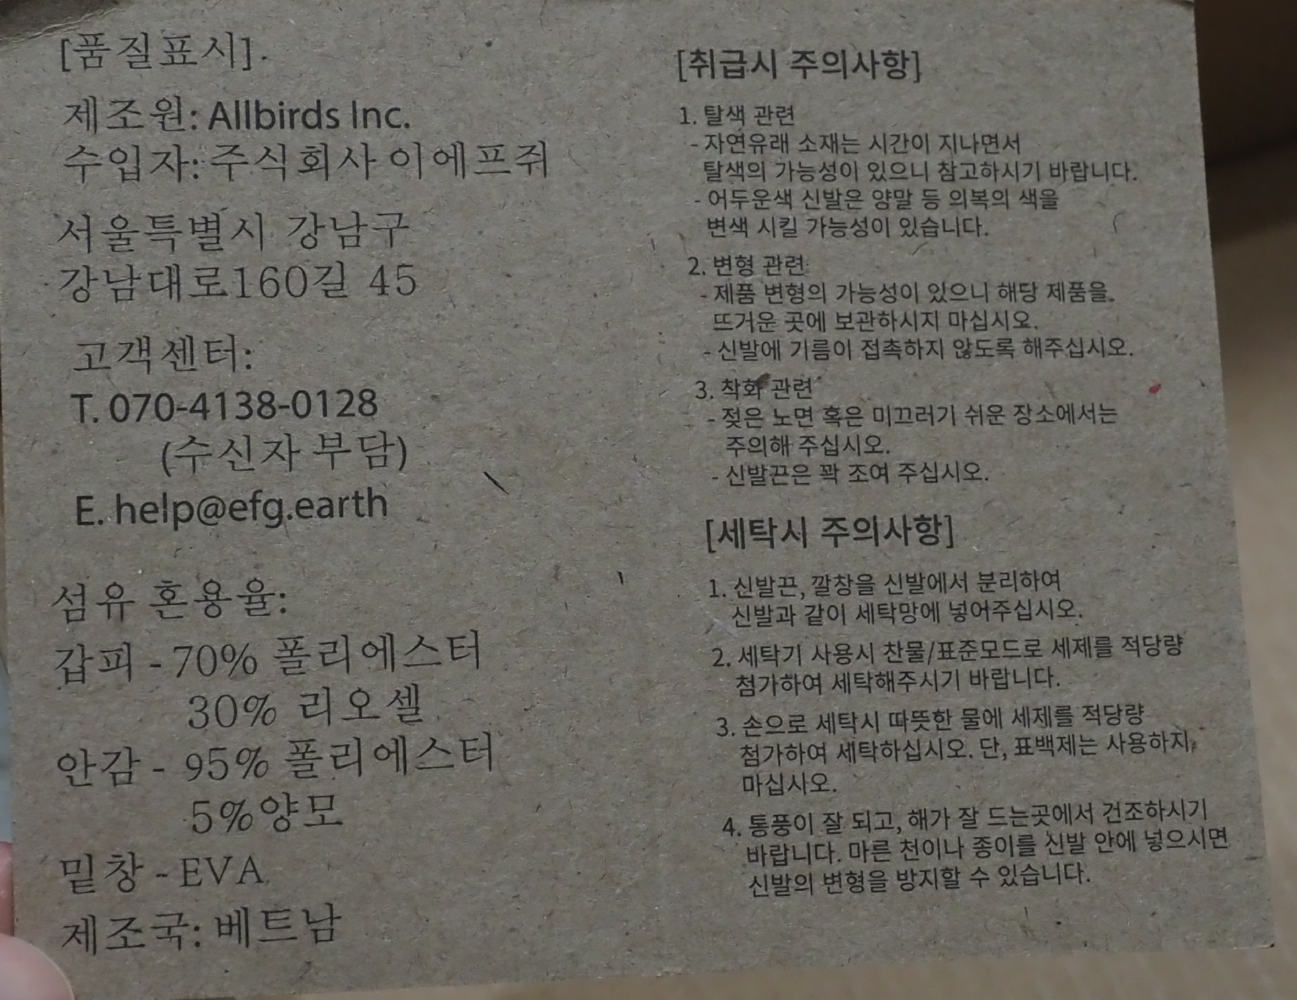 [품질표시]
제조원: Allbirds Inc.
수입자: 주식회사 이에프쥐
서울특별시 강남구
강남대로160길 45
고객센터:
T. 070-4138-0128
(수신자 부담)
E. help@efg.earth
섬유 혼용율:
갑피 - 70% 폴리에스터
30% 리오셀
안감 - 95% 폴리에스터
5%양모
밑창 - EVA
제조국: 베트남
[취급시 주의사항]
1. 탈색 관련
- 자연유래 소재는 시간이 지나면서
탈색의 가능성이 있으니 참고하시기 바랍니다.
- 어두운색 신발은 양말 등 의복의 색을
변색 시킬 가능성이 있습니다.
2. 변형 관련
- 제품 변형의 가능성이 있으니 해당 제품을
뜨거운 곳에 보관하시지 마십시오.
- 신발에 기름이 접촉하지 않도록 해주십시오.
3. 착화 관련
- 젖은 노면 혹은 미끄러기 쉬운 장소에서는
주의해 주십시오.
- 신발끈은 꽉 조여 주십시오.
[세탁시 주의사항]
1. 신발끈, 깔창을 신발에서 분리하여
신발과 같이 세탁망에 넣어주십시오.
2. 세탁기 사용시 찬물/표준모드로 세제를 적당량
첨가하여 세탁해주시기 바랍니다.
3. 손으로 세탁시 따뜻한 물에 세제를 적당량
첨가하여 세탁하십시오. 단, 표백제는 사용하지
마십시오.
4. 통풍이 잘 되고, 해가 잘 드는곳에서 건조하시기
바랍니다. 마른 천이나 종이를 신발 안에 넣으시면
신발의 변형을 방지할 수 있습니다.